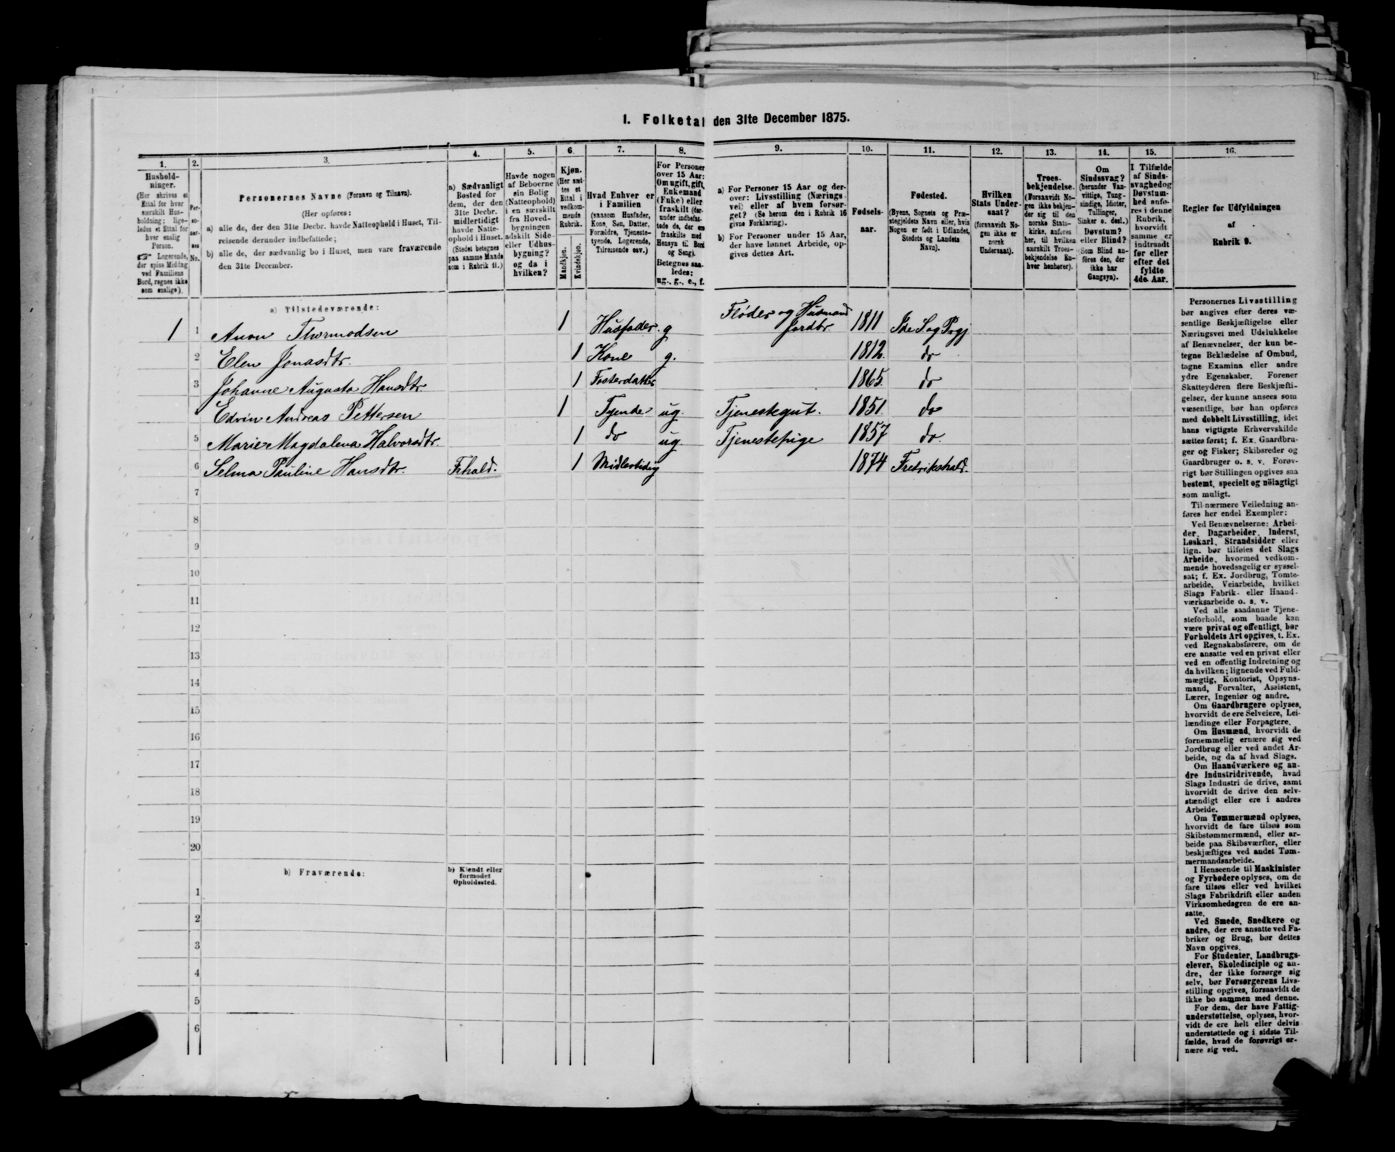 1. Folketal den 31te December 1875.
1. 2. 3. 4. 5. 6. 7. 8. 9. 10. 11. 12. 13. 14. 15. 16.
Husholdninger. (Her skrives et Ettal for hver
Per-
so-
nes
No.
Personernes Navne (Fornavn og Tilnavn).
(Her opføres:
a) alle de, der den 31te Decbr. havde Natteophold i Huset, Til-
reisende derunder indbefattede;
b) alle de, der sædvanlig bo i Huset, men vare fraværende
den 31te December.
a) Sædvanligt
Bosted for
dem, der den
31te Decbr.
midlertidigt
havde Natte-
ophold i Huset.
Havde nogen
af Beboerne
sin Bolig
(Natteophold)
i en særskilt
fra Hoved-
bygningen
adskilt Side-
eller Udhus-
bygning?
og da i
hvilken?
Kjøn.
Mandkjøn.
Kvindekjøn.
Hvad Enhver er
i Familien
(saasom Husfader,
Kone, Søn, Datter,
Forældre, Tjeneste-
tyende, Logerende,
Tilreisende osv.)
For Personer
over 15 Aar:
Om ugift, gift,
Enkemand
(Enke) eller
fraskilt
Betegnes saa-
ledes:
ug., g., e., f.
a) For Personer 15 Aar og der-
over: Livsstilling (Nærings-
vei) eller af hvem forsør-
get? (Se herom den i Rubrik 16
givne Forklaring).
b) For Personer under 15 Aar,
der have lønnet Arbeide, op-
gives dettes Art.
Fødsels-
aar.
Fødested.
(Byens, Sognets og Præ-
stegjeldets Navn eller, hvis
Nogen er født i Udlandet,
Stedets og Landets
Navn).
Hvilken
Stats Under-
saat?
(forsaavidt No-
gen ikke er
norsk
Undersaat).
Troes-
bekjendelse.
(Forsaavidt No-
gen ikke bekjen-
der sig til den
norske Stats-
kirke, anføres
her, til hvilken
særskilt Troes-
bekjendelse En-
hver henhører).
Om
Sindssvag?
Døvstum?
eller Blind?
I Tilfælde
af Sinds-
svaghed og
Døvstum-
hed anfø-
res i denne
Rubrik,
hvorvidt
samme er
indtraadt
før eller
efter det
fyldte
4de Aar.
Regler for Udfyldningen
af
Rubrik 9.
a) Tilstedeværende:
1 1 Anon Thormodsen 1 Husfader g Fløder og Husmand Jordbr 1811 Ide Sog Prgj
2 Elen Jonasdtr. 1 Kone g. 1812. do
3 Johanne Augusta Hansdtr. 1 Fosterdatter 1865. do
Edvin Andreas Pettersen 1 Tyende ug. Tjenestegut. 1851. do
5 Marie Magdalena Halvorsdtr. 1 do ug. Tjenestepige 1857. do.
6 Selma Pauline Hansdtr. Frhald. 1 Midlertidig 1874 Fredrikshald.
7
8
9
10
11
12
13
14
15
16
17
18
19
20
b) Fraværende:
b) Kjendt eller
formodet
Opholdssted.
1
2
3
4
5
6
Personernes Livsstilling
bør angives efter deres væ-
sentlige Beskjæftigelse eller
Næringsvei med Udelukkelse
af Benævnelser, der kun be-
tegne Beklædelse af Ombud,
tagne Examina eller andre
ydre Egenskaber. Forener
Skatteyderen flere Beskjæfti-
gelser, der kunne ansees som
væsentlige, bør han opføres
med dobbelt Livsstilling, idet
hans vigtigste Erhvervskilde
sættes først; f. Ex. Gaardbru-
ger og Fisker; Skibsreder og
Gaardbruger o. s. v. Forøv-
rigt bør Stillingen opgives saa
bestemt, specielt og nöiagtigt
som muligt.
Til nærmere Veiledning an-
føres her endel Exempler:
Ved Benævnelserne: Arbei-
der, Dagarbeider, Inderst,
Løskarl, Strandsidder eller
lign. bør tilføies det Slags
Arbeide, hvormed vedkom-
mende hovedsagelig er syssel-
sat; f. Ex. Jordbrug, Tomte-
arbeide, Veiarbeide, hvilket
Slags Fabrik- eller Haand-
værksarbeide o. s. v.
Ved alle saadanne Tjene-
steforhold, som baade kan
være privat og offentligt, bør
Forholdets Art opgives, t. Ex.
ved Regnskabsførere, om de
ere ansatte ved en privat eller
ved en offentlig Indretning og
da hvilken; lignende ved Fuld-
mægtig, Kontorist, Opsyns-
mand, Forvalter, Assistent,
Lærer, Ingeniør og andre.
Om Gaardbrugere oplyses,
hvorvidt de ere Selveiere, Lei-
lændinge eller Forpagtere.
Om Husmænd, hvorvidt de
fornemmelig ernære sig ved
Jordbrug eller ved andet Ar-
beide, og da af hvad Slags.
Om Haandværkere og an-
dre Industridrivende, hvad
Slags Industri de drive, samt
hvorvidt de drive den selv-
stændigt eller ere i andres
Arbeide.
Om Tømmermænd oplyses,
hvorvidt de fare tilsøs som
Skibstømmermænd, eller ar-
beide paa Skibsværfter, eller
beskjæftiges ved andet Tøm-
mermandsarbeide.
I Henseende til Maskinister
og Fyrbødere oplyses, om de
fare tilsøs eller ved hvilket
Slags Fabrikdrift eller anden
Virksomhedsgren de ere an-
satte.
Ved Smede, Snedkere og
andre, der ere ansatte ved Fa-
briker og Brug, bør dettes
Navn opgives.
For Studenter, Landbrugs-
elever, Skoledisciple og an-
dre, der ikke forsørge sig
selv, bør Forsørgerens Livs-
stilling opgives, forsaavidt de
ikke bo sammen med denne.
For dem, der have Fattig-
understøttelse, oplyses, hvor-
vidt de ere helt eller delvis
understøttede og i sidste Til-
fælde, hvad de forøvrigt er-
nære sig ved.